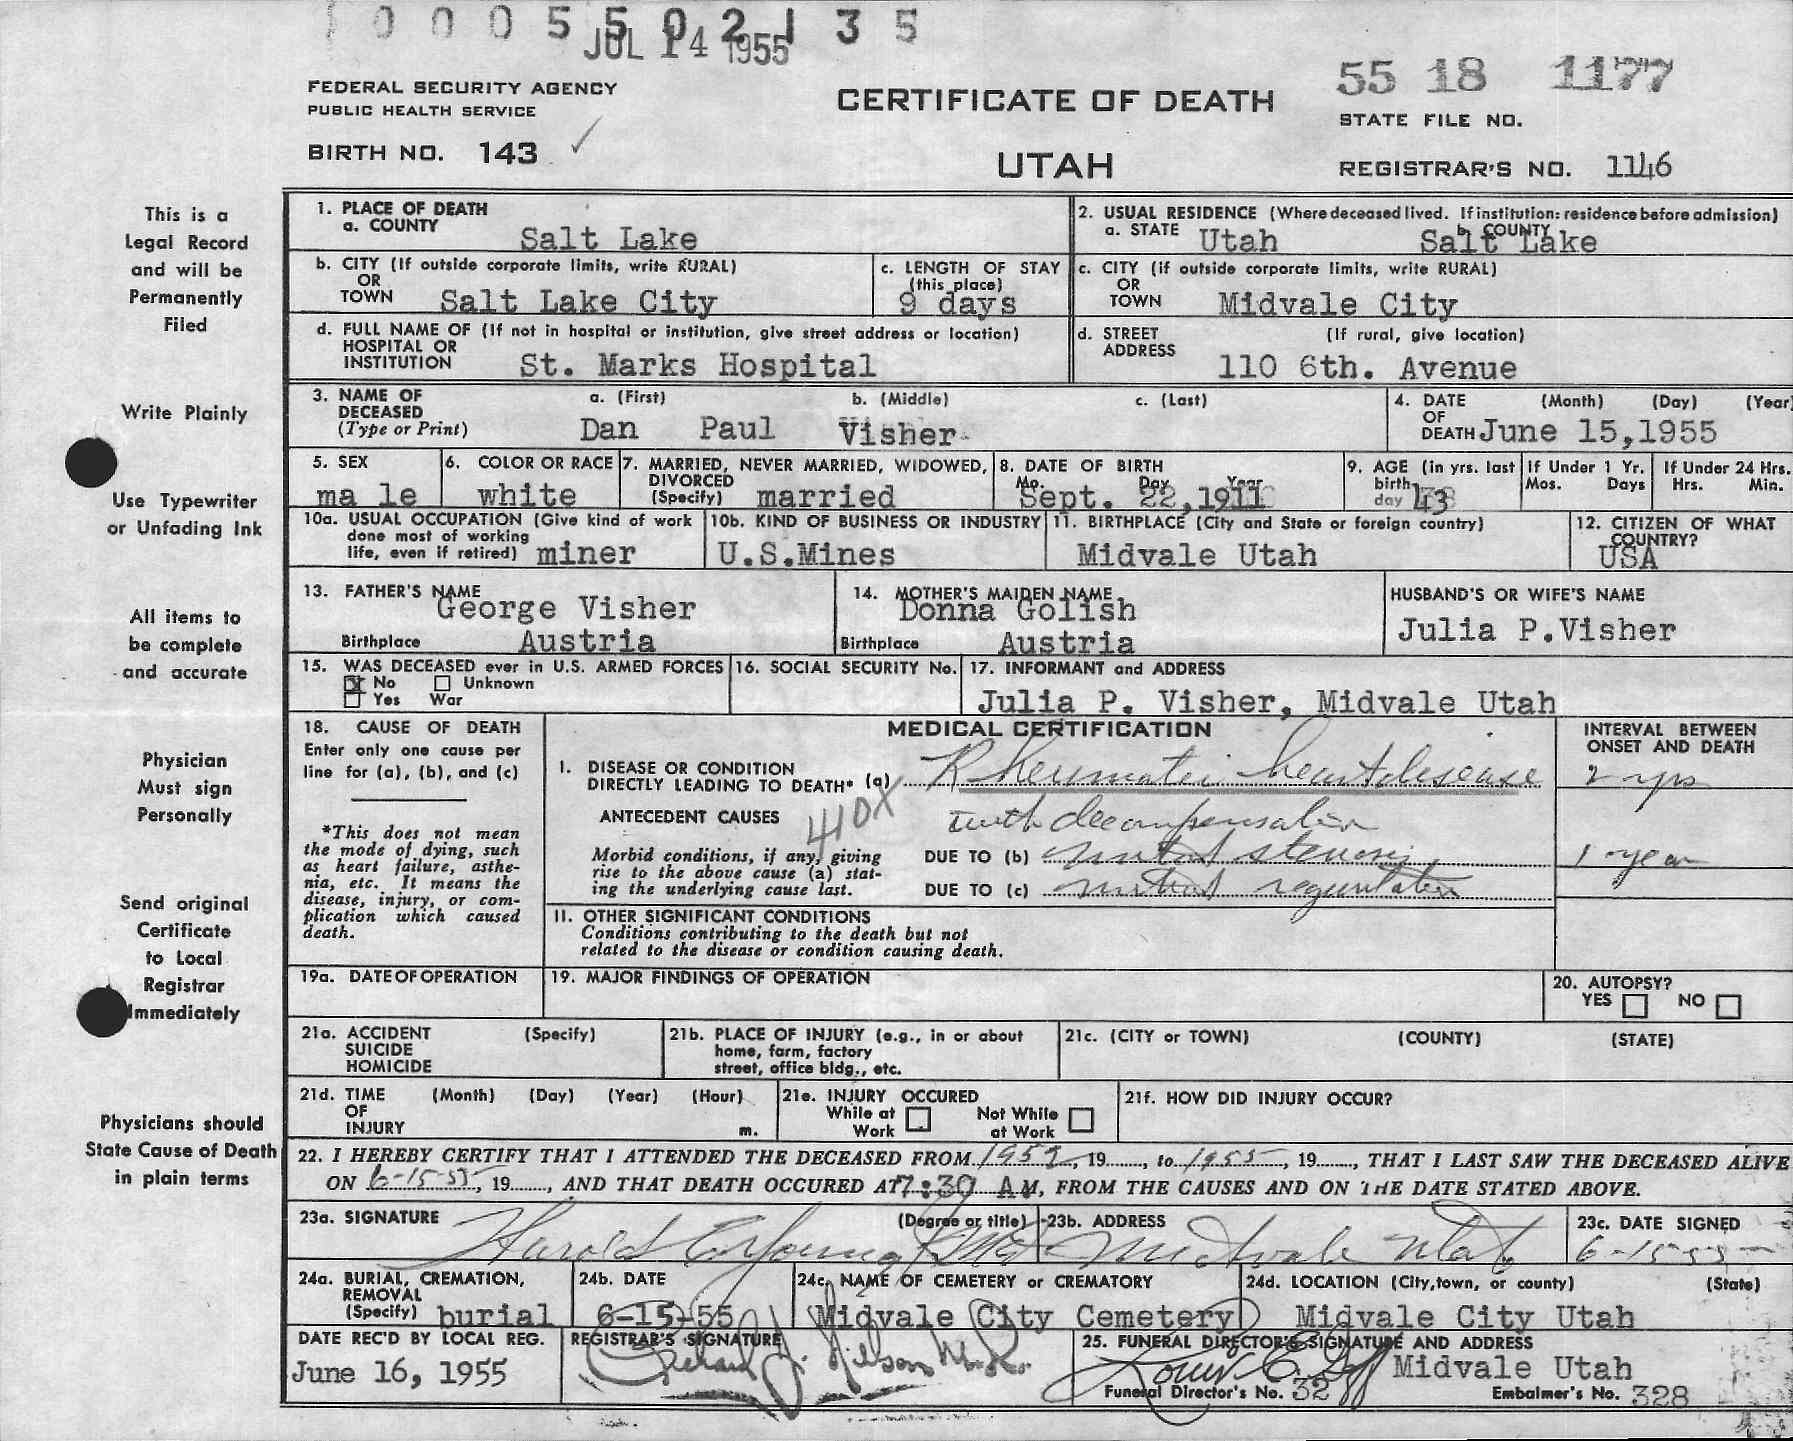 1 0 0 0 5 5 0 2 1 3 5
JUL 14 1955
55 18 1177
FEDERAL SECURITY AGENCY
PUBLIC HEALTH SERVICE
CERTIFICATE OF DEATH
STATE FILE NO.
BIRTH NO. 143 ✓
UTAH
REGISTRAR'S NO. 1146
This is a
Legal Record
and will be
Permanently
Filed
Write Plainly
Use Typewriter
or Unfading Ink
All items to
be complete
and accurate
Physician
Must sign
Personally
Send original
Certificate
to Local
Registrar
Immediately
Physicians should
State Cause of Death
in plain terms
1. PLACE OF DEATH
a. COUNTY Salt Lake
2. USUAL RESIDENCE (Where deceased lived. If institution: residence before admission)
a. STATE Utah b. COUNTY Salt Lake
b. CITY (If outside corporate limits, write RURAL)
OR
TOWN Salt Lake City
c. LENGTH OF STAY
(this place)
9 days
c. CITY (if outside corporate limits, write RURAL)
OR
TOWN Midvale City
d. FULL NAME OF (If not in hospital or institution, give street address or location)
HOSPITAL OR
INSTITUTION St. Marks Hospital
d. STREET (If rural, give location)
ADDRESS 110 6th. Avenue
3. NAME OF a. (First) b. (Middle) c. (Last)
DECEASED
(Type or Print) Dan Paul Visher
4. DATE (Month) (Day) (Year)
OF
DEATH June 15,1955
5. SEX
ma le
6. COLOR OR RACE
white
7. MARRIED, NEVER MARRIED, WIDOWED,
DIVORCED
(Specify) married
8. DATE OF BIRTH
Mo. Day Year
Sept. 22,1911
9. AGE (in yrs. last
birth
day 43
If Under 1 Yr.
Mos. Days
If Under 24 Hrs.
Hrs. Min.
10a. USUAL OCCUPATION (Give kind of work
done most of working
life, even if retired) miner
10b. KIND OF BUSINESS OR INDUSTRY
U.S.Mines
11. BIRTHPLACE (City and State or foreign country)
Midvale Utah
12. CITIZEN OF WHAT
COUNTRY?
USA
13. FATHER'S NAME
George Visher
Birthplace Austria
14. MOTHER'S MAIDEN NAME
Donna Golish
Birthplace Austria
HUSBAND'S OR WIFE'S NAME
Julia P.Visher
15. WAS DECEASED ever in U.S. ARMED FORCES
X No Unknown
Yes War
16. SOCIAL SECURITY No.
17. INFORMANT and ADDRESS
Julia P. Visher, Midvale Utah
18. CAUSE OF DEATH
Enter only one cause per
line for (a), (b), and (c)
*This does not mean
the mode of dying, such
as heart failure, asthe-
nia, etc. It means the
disease, injury, or com-
plication which caused
death.
MEDICAL CERTIFICATION
I. DISEASE OR CONDITION
DIRECTLY LEADING TO DEATH* (a) Rheumatic heart disease
ANTECEDENT CAUSES with decompensation
410X
Morbid conditions, if any, giving
rise to the above cause (a) stat-
ing the underlying cause last.
DUE TO (b) mitral stenosis
DUE TO (c) mitral regurgitation
INTERVAL BETWEEN
ONSET AND DEATH
2 yrs
1 year
II. OTHER SIGNIFICANT CONDITIONS
Conditions contributing to the death but not
related to the disease or condition causing death.
19a. DATE OF OPERATION
19. MAJOR FINDINGS OF OPERATION
20. AUTOPSY?
YES NO
21a. ACCIDENT (Specify)
SUICIDE
HOMICIDE
21b. PLACE OF INJURY (e.g., in or about
home, farm, factory
street, office bldg., etc.
21c. (CITY or TOWN) (COUNTY) (STATE)
21d. TIME (Month) (Day) (Year) (Hour)
OF
INJURY m.
21e. INJURY OCCURED
While at Work Not While at Work
21f. HOW DID INJURY OCCUR?
22. I HEREBY CERTIFY THAT I ATTENDED THE DECEASED FROM 1952, 19......, to 1955, 19......, THAT I LAST SAW THE DECEASED ALIVE
ON 6-15-55, 19......, AND THAT DEATH OCCURED AT 7:30 AM, FROM THE CAUSES AND ON THE DATE STATED ABOVE.
23a. SIGNATURE (Degree or title)
Harold Young
23b. ADDRESS
Midvale Utah
23c. DATE SIGNED
6-15-55
24a. BURIAL, CREMATION,
REMOVAL
(Specify) burial
24b. DATE
6-15-55
24c. NAME OF CEMETERY or CREMATORY
Midvale City Cemetery
24d. LOCATION (City, town, or county) (State)
Midvale City Utah
DATE REC'D BY LOCAL REG.
June 16, 1955
REGISTRAR'S SIGNATURE
25. FUNERAL DIRECTOR'S SIGNATURE AND ADDRESS
Midvale Utah
Funeral Director's No. 32 Embalmer's No. 328